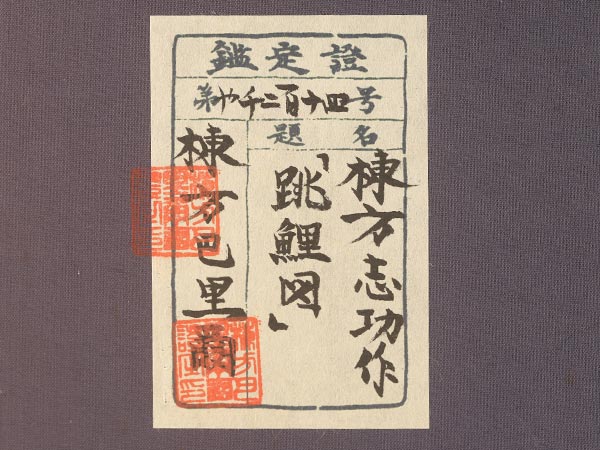 鑑定證
第や千二百十四号
題名
棟方志功作
「跳鯉図」
棟方巴里爾